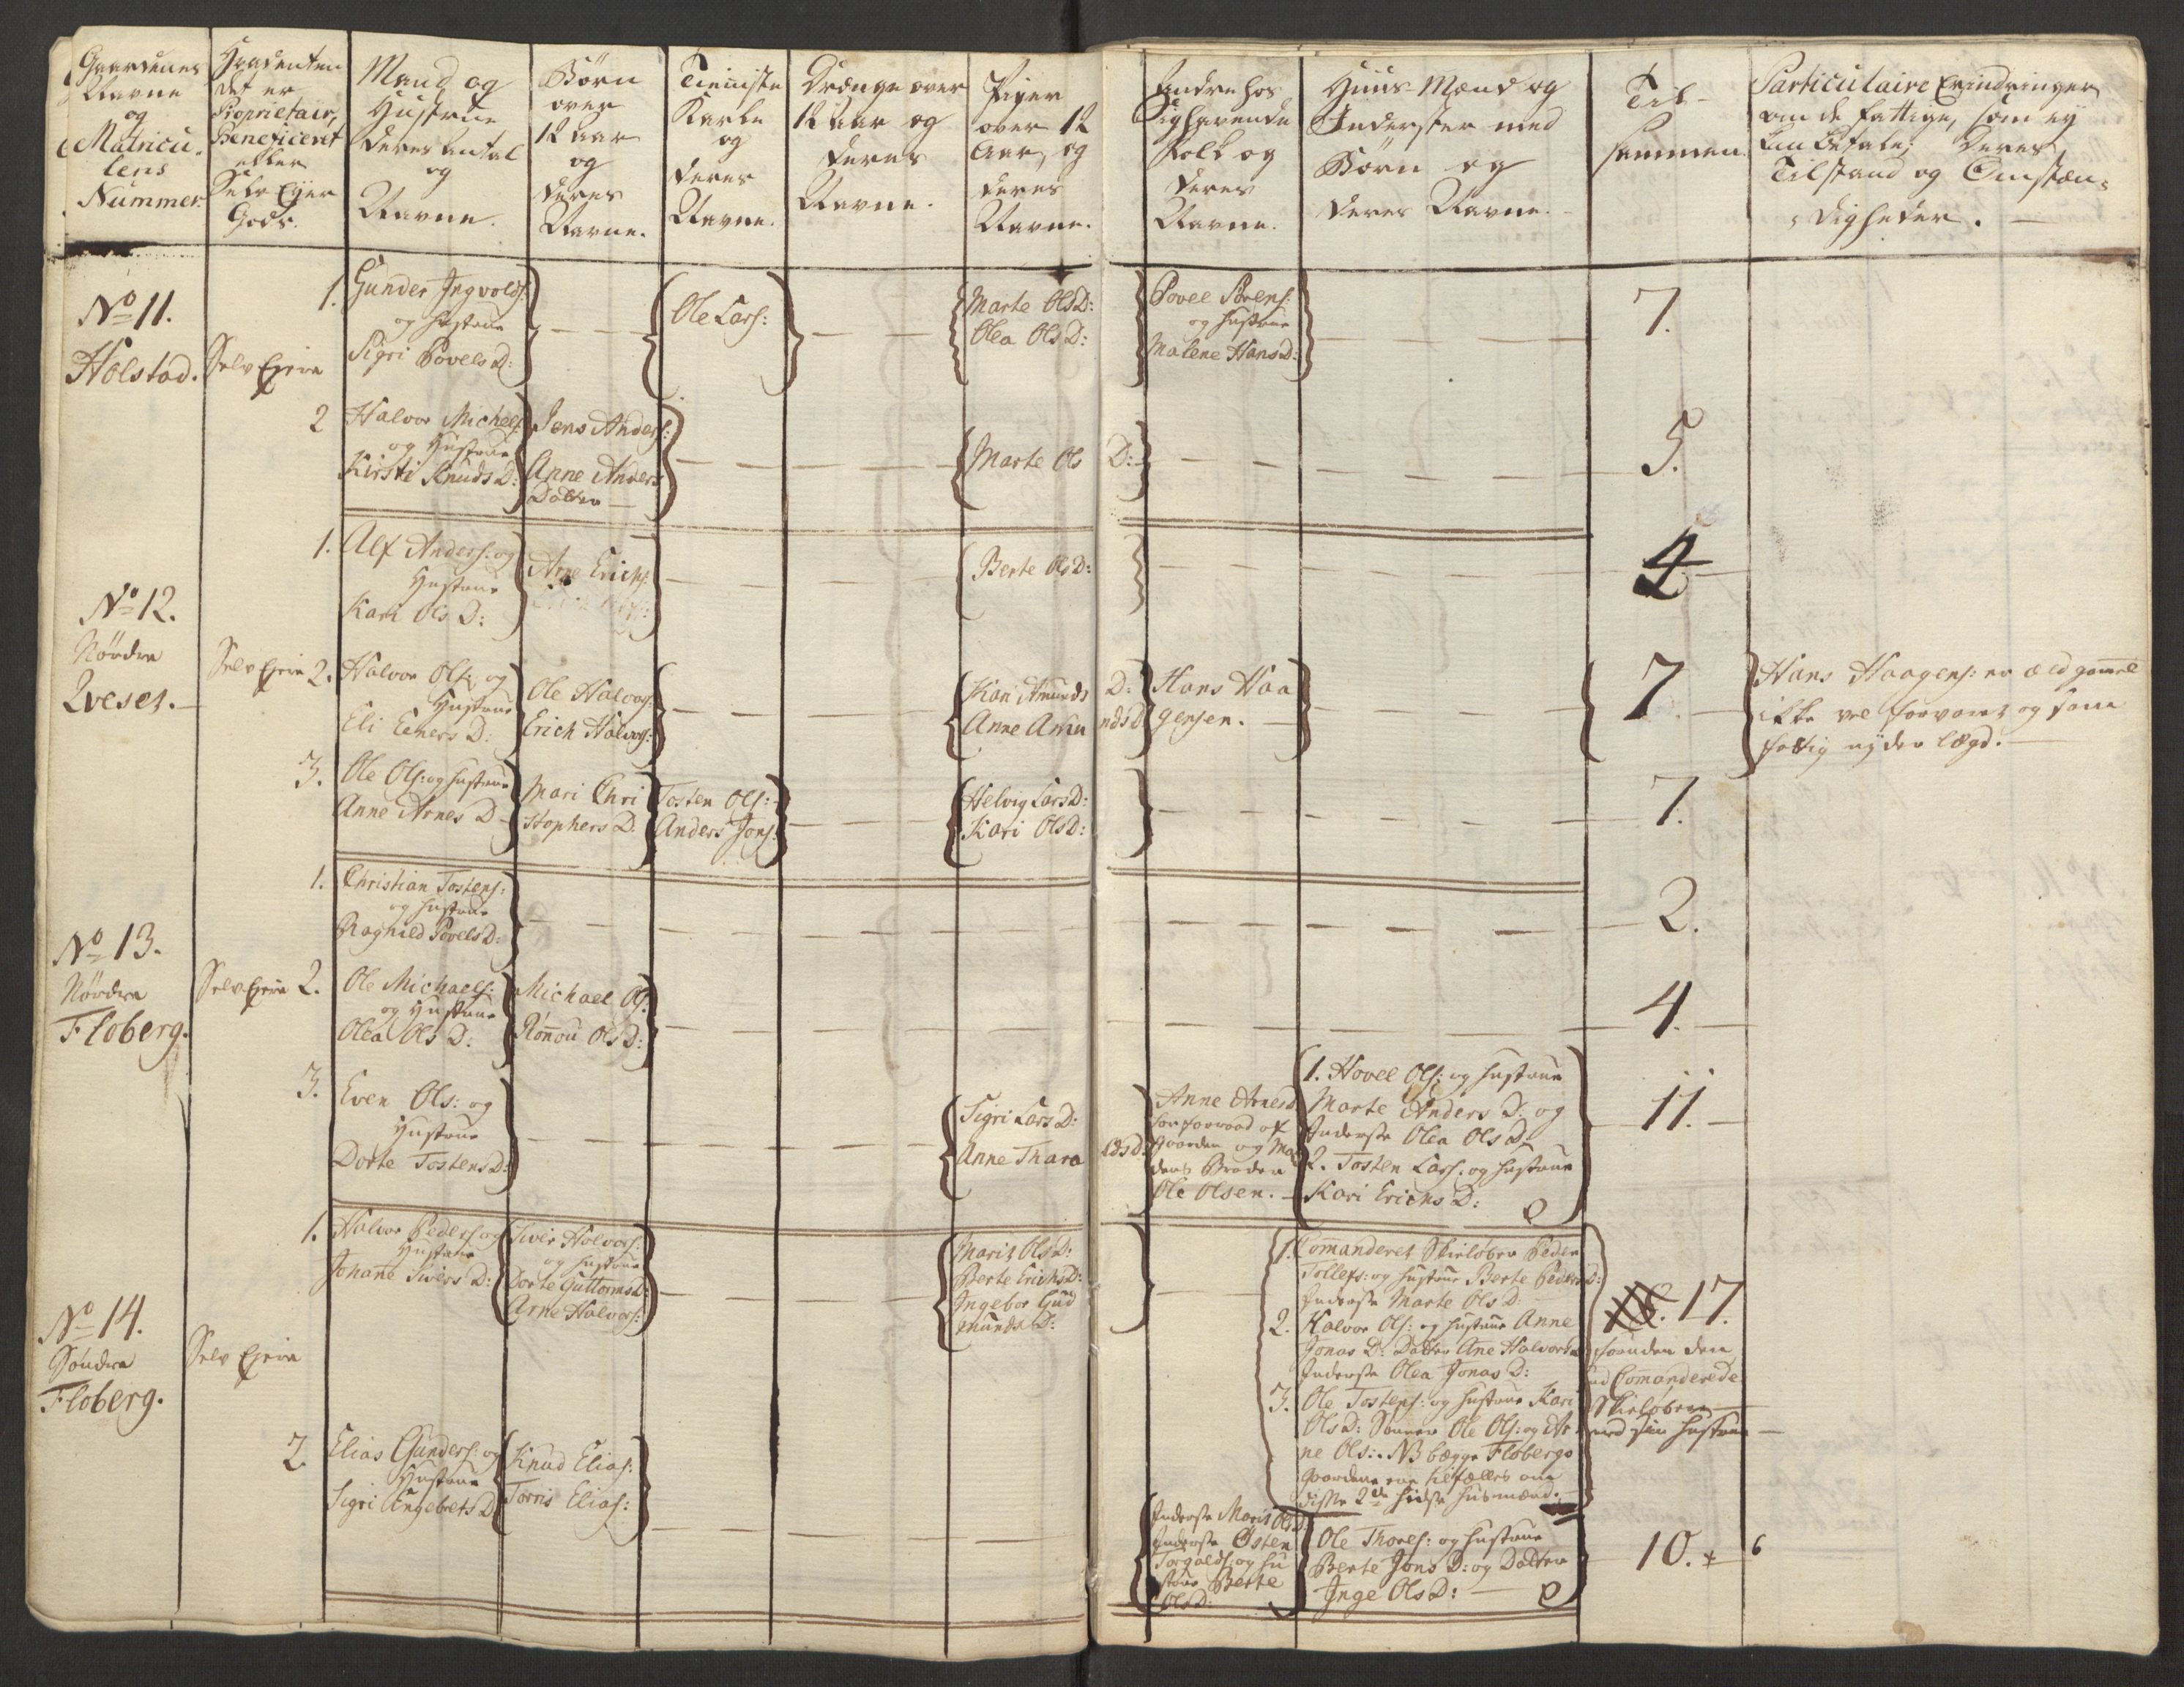 Gaardenes
Navne
og
Matricu-
lens
Nummer.
Hvadenten
det er
Proprietair,
Beneficeret
eller
Selv Ejer
Gods.
Mand og
Hustrue
deres Antal
og
Navne.
Børn
over
12 Aar
og
deres
Navne.
Tieniste
Karle
og
deres
Navne.
Drænge over
12 Aar og
deres
Navne.
Piger
over 12
Aar, og
deres
Navne.
Andre hos
Sig havende
Folk og
deres
Navne.
Huus Mænd og
Inderster med
Børn og
deres Navne.
Til-
sammen.
Particulaire Erindringer
om de fattige, som ej
kan betale; deres
Tilstand og Omstæn-
digheder.
No 11.
Holstad.
Selv Ejere
1. Gunder Ingvolds:
og hustrue
Sigri Povels D:
Ole Lars:
Marte Ols D:
Olea Ols D:
Povel Sørens:
og hustrue
Malene Hans D:
7.
2 Halvor Michels:
og Hustrue
Kirsti Knuds D:
Jens Anders:
Anne Anders
Datter
Marte Ols D:
5.
No 12.
Nørdre
Qveset.
Selv Ejere
1. Alf Anders: og
Hustrue
Kari Ols D:
Arne Erichs:
Berte Ols D:
4
2. Halvor Ols: og
Hustrue
Eli Eeners D:
Ole Halvors:
Erich Halvors:
Kari Amunds D:
Anne Amundsd
Hans Haa
gensen.
7.
Hans Haagens: er ældgammel
ikke vel forvaret og som
fattig nyder lægd.
3. Ole Ols: og hustrue
Anne Arnes D
Mari Chri
stophers D.
Tosten Ols:
Anders Jons:
Helvig Lars D:
Kari Ols D:
7.
No 13.
Nørdre
Floberg.
Selv Ejere
1. Christian Tostens:
og hustrue
Ragnild Povels D:
2.
2. Ole Michaels:
og Hustrue
Olea Ols D:
Michael Ols:
Rönnou Ols D:
4.
3. Even Ols: og
Hustrue
Dorte Tostens D:
Sigri Lars D:
Anne Thara ldsd:
Anne Arnesd
for forraad af
Gaarden og Ma
dens Broder
Ole Olsen.
1. Hovel Ols: og hustrue
Marte Anders D: og
Inderste Olea Ols D:
2. Tosten Lars: og hustrue
Kari Erichs D:
11.
No 14.
Søndre
Floberg.
Selv Ejere
1. Halvor Peders: og
Hustrue
Johane Sivers D:
Siver Halvors:
og hustrue
Dorte Guttorms D:
Arne Halvors:
Marit Ols D:
Berte Erichs D:
Ingebor Gud
munds D:
1. Comanderet Skieløber Peder
Tollefs: og hustrue Berte Peders D:
Inderste Marte Ols D:
2. Halvor Ols: og hustrue Anne
Jonas D: Datter Ane Halvors D
Inderste Olea Jonas D:
3. Ole Tostens: og hustrue Kari
Ols D: Sønner Ole Ols: og Ar
ne Ols:. NB begge Flobergs
Gaardene ere tilfælles om
disse 2de sidste husmænd.
17.
foruden den
ud Comanderede
Skieløber
med sin hustrue
2. Elias Gunders: og
Hustrue
Sigri Engebrets D
Knud Elias:
Torris Elias:
Inderste Marit Ols D
Inderste Østen
Torgalds: og hu
strue Berte
Ols D:
Ole Thores: og hustrue
Berte Jons D: og Datter
Inge Ols D:
10. + 6